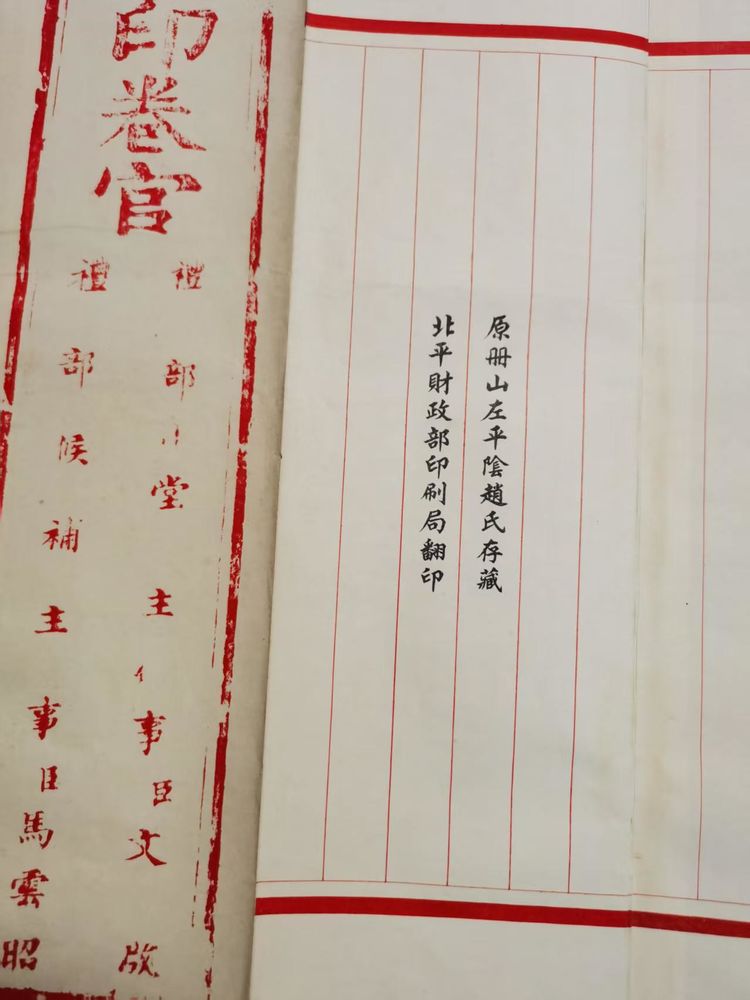 原册山左平陰趙氏存藏
北平財政部印刷局翻印
印卷官
禮部堂主事臣文啟
禮部候補主事臣馬雲昭